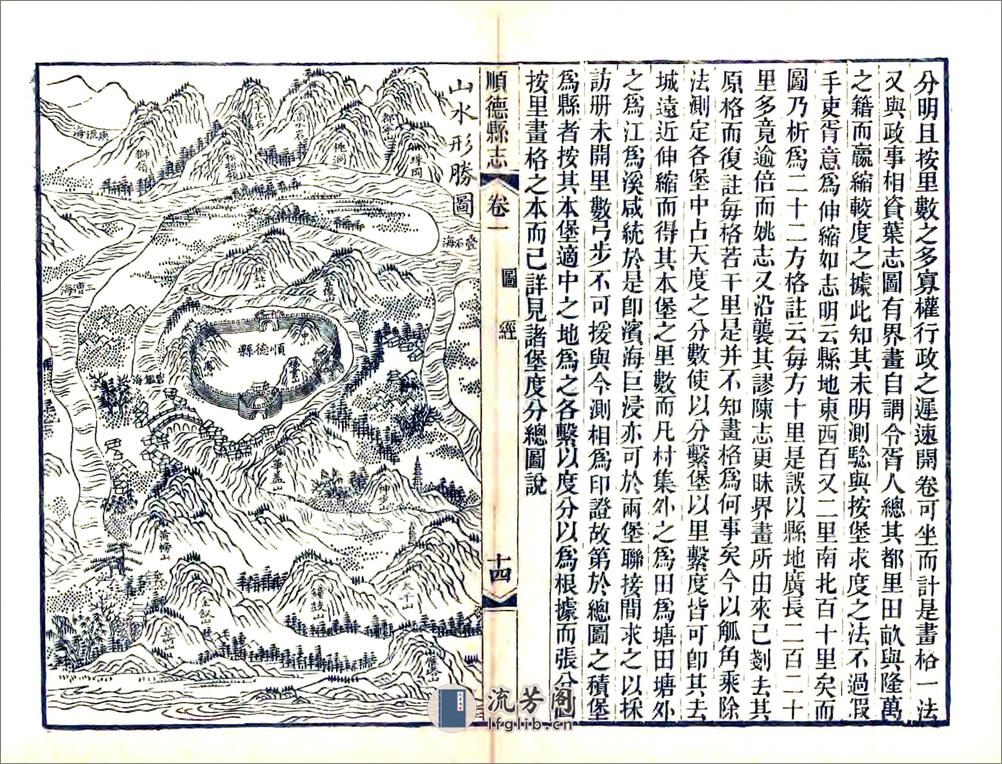 分明且按里數之多寡權行政之遲速開卷可坐而計是畫格一法
又與政事相資葉志圖有界畫自謂令胥人總其都里田畝與隆萬
之籍而贏縮較度之據此知其未明測驗與按堡求度之法不過假
手吏胥意為伸縮如志明云縣地東西百又二里南北百十里矣而
圖乃析為二十二方格註云每方十里是誤以縣地廣長二百二十
里多竟逾倍而姚志又沿襲其謬陳志更昧界畫所由來已剗去其
原格而復註每格若干里是并不知畫格為何事矣今以觚角乘除
法測定各堡中占天度之分數使以分繫堡以里繫度皆可卽其去
城遠近伸縮而得其本堡之里數而凡村集外之為田為塘田塘外
之為江為溪咸統於是卽濱海巨浸亦可於兩堡聯接間求之以採
訪册未開里數弓步不可援與今測相為印證故第於總圖之積堡
為縣者按其本堡適中之地為之各繫以度分以為根據而張分圖
按里畫格之本而已詳見諸堡度分總圖說
順德縣志
卷一
圖經
十四
山水形勝圖
順德縣
三漕海
碧鑑海
華蓋山
神步山
天平山
金釵山
流芳阁
lfglib.cn